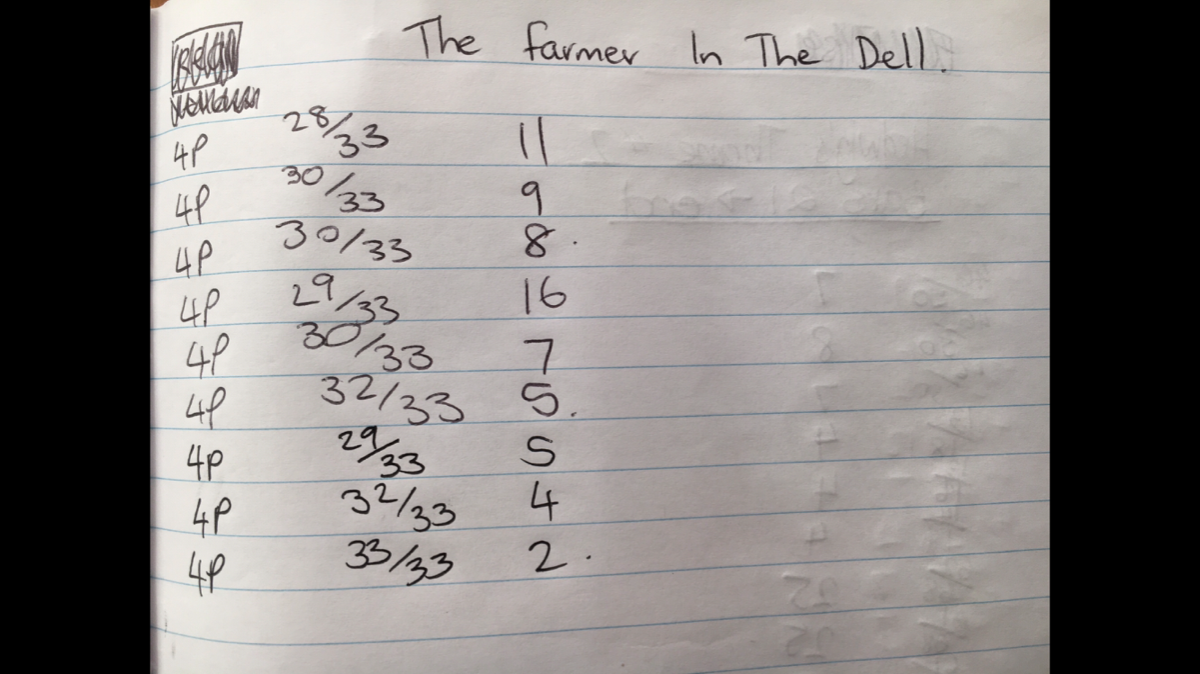 The farmer In The Dell.
4P 28/33 11
4P 30/33 9
4P 30/33 8.
4P 29/33 16
4P 30/33 7
4P 32/33 5.
4P 29/33 5
4P 32/33 4
4P 33/33 2.